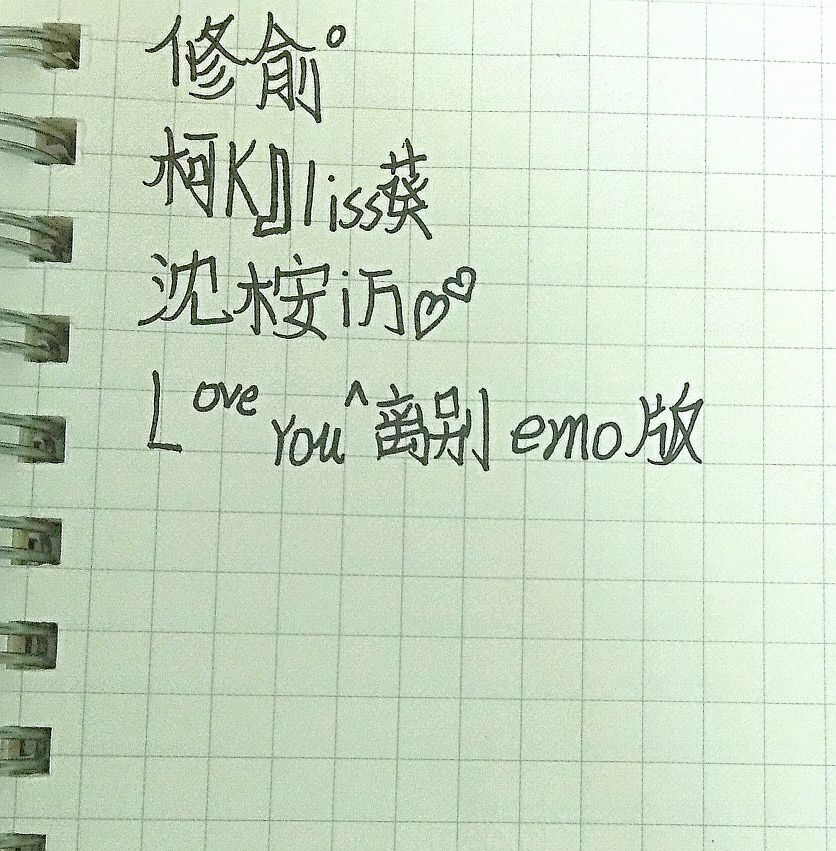 修俞°
柯K』liss葵
沈桉i沥♡♡
Love You^离别emo版